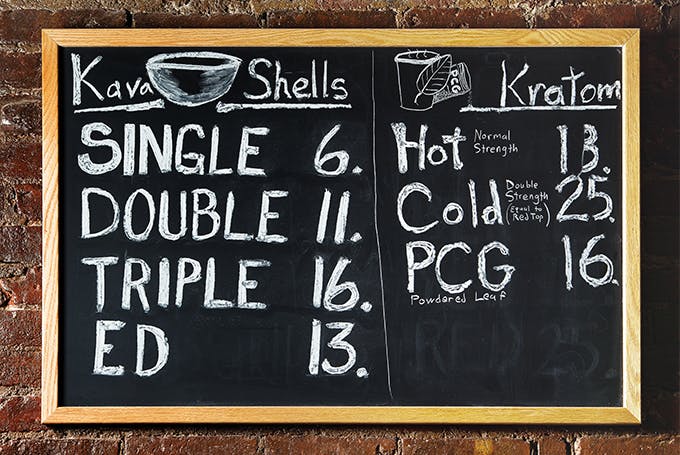 Kava Shells
SINGLE 6.
DOUBLE 11.
TRIPLE 16.
ED 13.
PCG
Kratom
Hot Normal Strength 13.
Cold Double Strength (Equal to Red Top) 25.
PCG 16.
Powdared Leaf
RED 25.